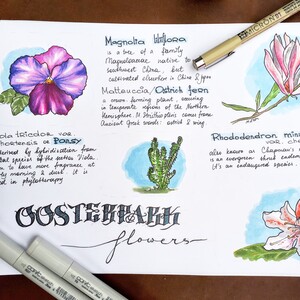 Magnolia liliflora
is a tree of a family
Magnoliaceae native to
southwest China, but
cultivated elsewhere in China &
Matteuccia/Ostrich fern
a crown forming plant, occuring
in temperate regions of the Northern
Hemisphere. It
comes from
Ancient Greek words: ostrich & wing.
ola tricolor var.
hortensis or PANSY
derived by hybridization from
species of the section Viola.
to have more fragrance at
early morning & dusk. It is
used in phytotherapy
Rhododendron min
var. cha
also known as Chapman's
is an evergreen shrub
It's an endangered species.
OOSTERPARK
flowers
MICRON